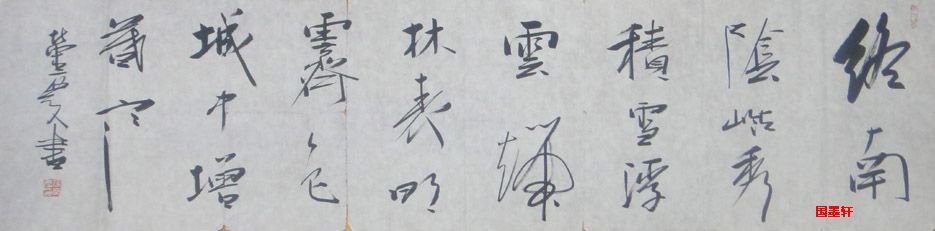 終南
陰岭秀
積雪浮
雲端
林表明
霽色
城中增
暮寒
人書
国墨轩